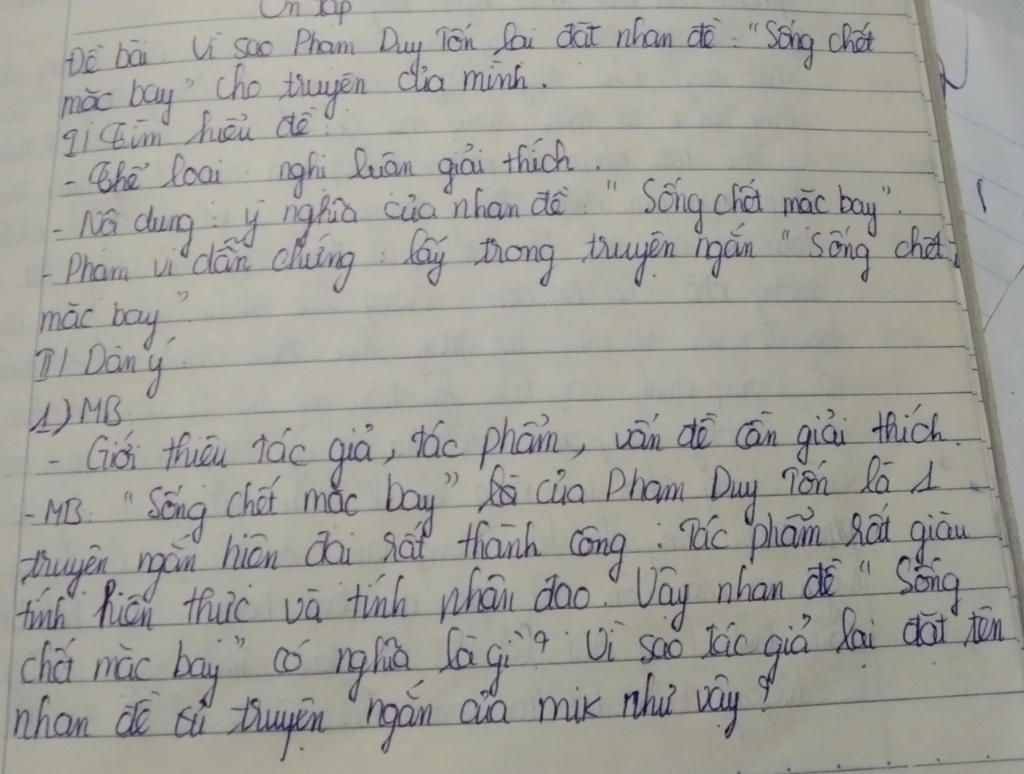 Ôn tập
Đề bài: Vì sao Phạm Duy Tốn lại đặt nhan đề: "Sống chết
mặc bay" cho truyện của mình.
I/ Tìm hiểu đề:
- Thể loại: nghị luận giải thích.
- Nội dung: ý nghĩa của nhan đề: "Sống chết mặc bay".
- Phạm vi dẫn chứng: lấy trong truyện ngắn "Sống chết
mặc bay".
II/ Dàn ý
1) MB
- Giới thiệu tác giả, tác phẩm, vấn đề cần giải thích.
- MB: "Sống chết mặc bay" của Phạm Duy Tốn là 1
truyện ngắn hiện đại rất thành công. Tác phẩm rất giàu
tính hiện thực và tính nhân đạo. Vậy nhan đề "Sống
chết mặc bay" có nghĩa là gì? Vì sao tác giả lại đặt tên
nhan đề truyện ngắn của mik như vậy?